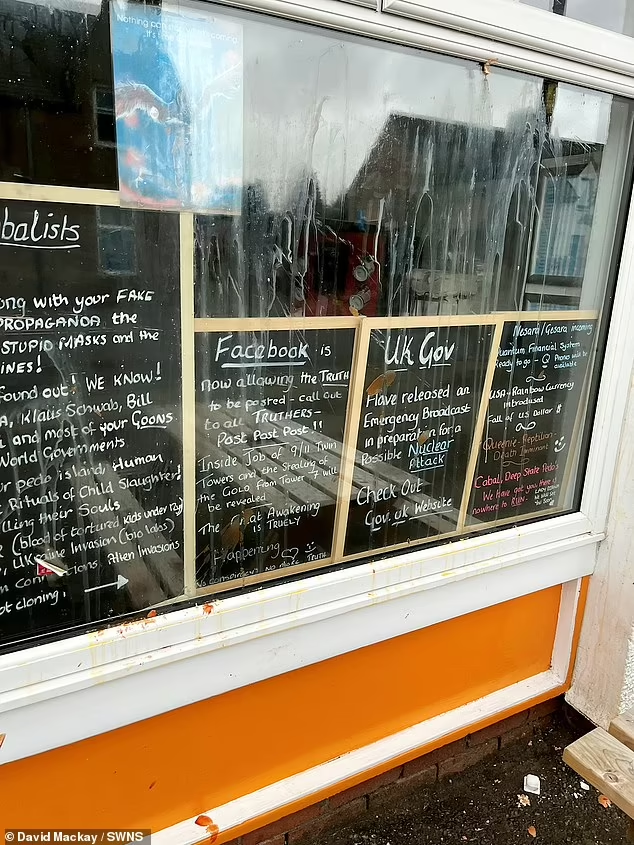 Nothing can
balists
ong with your FAKE
PROPAGANDA the
STUPID MASKS and the
INES!
found out! WE KNOW!
A, Klaus Schwab, Bill
and most of your GOONS
World Governments
r pedo island, Human
Rituals of Child Slaughter!
lling their Souls
(blood of tortured kids under
Ukraine Invasion (bio labs)
Alien Invasions
ot cloning!
Facebook is
now allowing the TRUTH
to be posted - call out
to all TRUTHERS-
Post Post Post!!
Inside Job of 9/11 Twin
Towers and the Stealing of
the GOLD from Tower 7 will
be revealed
The Awakening
is TRUELY
Happening
No conspiracy. No more TRUTH
UK Gov
Have released an
Emergency Broadcast
in preparation for a
Possible Nuclear
Attack
Check Out
Gov.uk Website
Nesara/Gesara incoming
Quantum Financial System
Ready to go - Q Phones will be
available
USA - Rainbow Currency
introduced
Fall of US Dollar $
Queenie - Reptilian
Death Imminent
Cabal, Deep State Pedos
We have got you there is
nowhere to RUN.
© David Mackay / SWNS